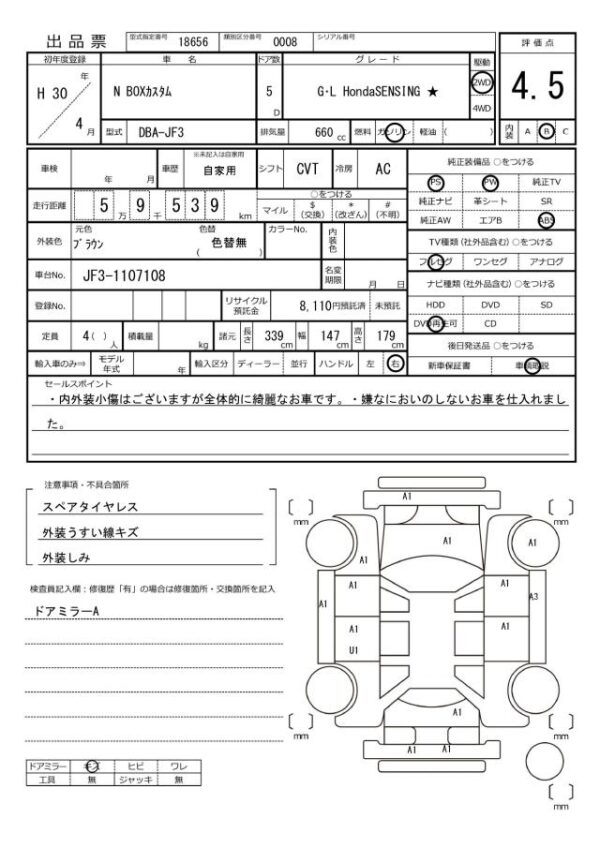 出品票 型式指定番号 18656 類別区分番号 0008 シリアル番号
評価点
4.5
内装 A B C
初年度登録 車名 ドア数 グレード 駆動
H 30 年 4 月
N BOXカスタム 5 D G・L HondaSENSING ★ 2WD 4WD
型式 DBA-JF3 排気量 660 cc 燃料 ガソリン 軽油 ( )
車検 年 月 車歴 ※未記入は自家用 自家用 シフト CVT 冷房 AC
走行距離 5 万 9 千 5 3 9 km
○をつける
マイル $ (交換) * (改ざん) # (不明)
外装色 元色 ブラウン 色替 色替無 ( ) カラーNo. 内装色
車台No. JF3-1107108 名変期限 月 日
登録No. リサイクル預託金 8,110円預託済 未預託
定員 4( ) 人 積載量 kg 諸元 長さ 339 cm 幅 147 cm 高さ 179 cm
輸入車のみ⇒ モデル年式 年 輸入区分 ディーラー 並行 ハンドル 左 右
純正装備品 ○をつける
PS PW 純正TV
純正ナビ 革シート SR
純正AW エアB ABS
TV種類(社外品含む)○をつける
フルセグ ワンセグ アナログ
ナビ種類(社外品含む)○をつける
HDD DVD SD
DVD再生可 CD
後日発送品 ○をつける
新車保証書 車輌取説
セールスポイント
・内外装小傷はございますが全体的に綺麗なお車です。・嫌なにおいのしないお車を仕入れまし
た。
注意事項・不具合箇所
スペアタイヤレス
外装うすい線キズ
外装しみ
検査員記入欄：修復歴「有」の場合は修復箇所・交換箇所を記入
ドアミラーA
ドアミラー キズ ヒビ ワレ
工具 無 ジャッキ 無
[ ] mm
A1
[ ] mm
A1
A1
A1
A1
A1
A1
A3
A1
A1
U1
A1
[ ] mm
A1
A1
[ ] mm
[ ] mm